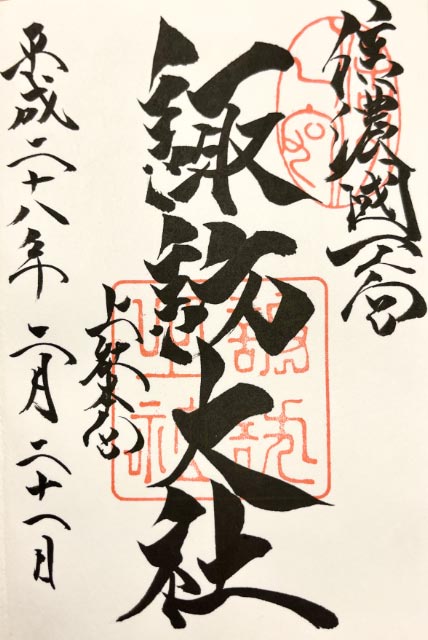 信濃國一宮
諏訪大社
上社本宮
平成二十八年 二月二十一日